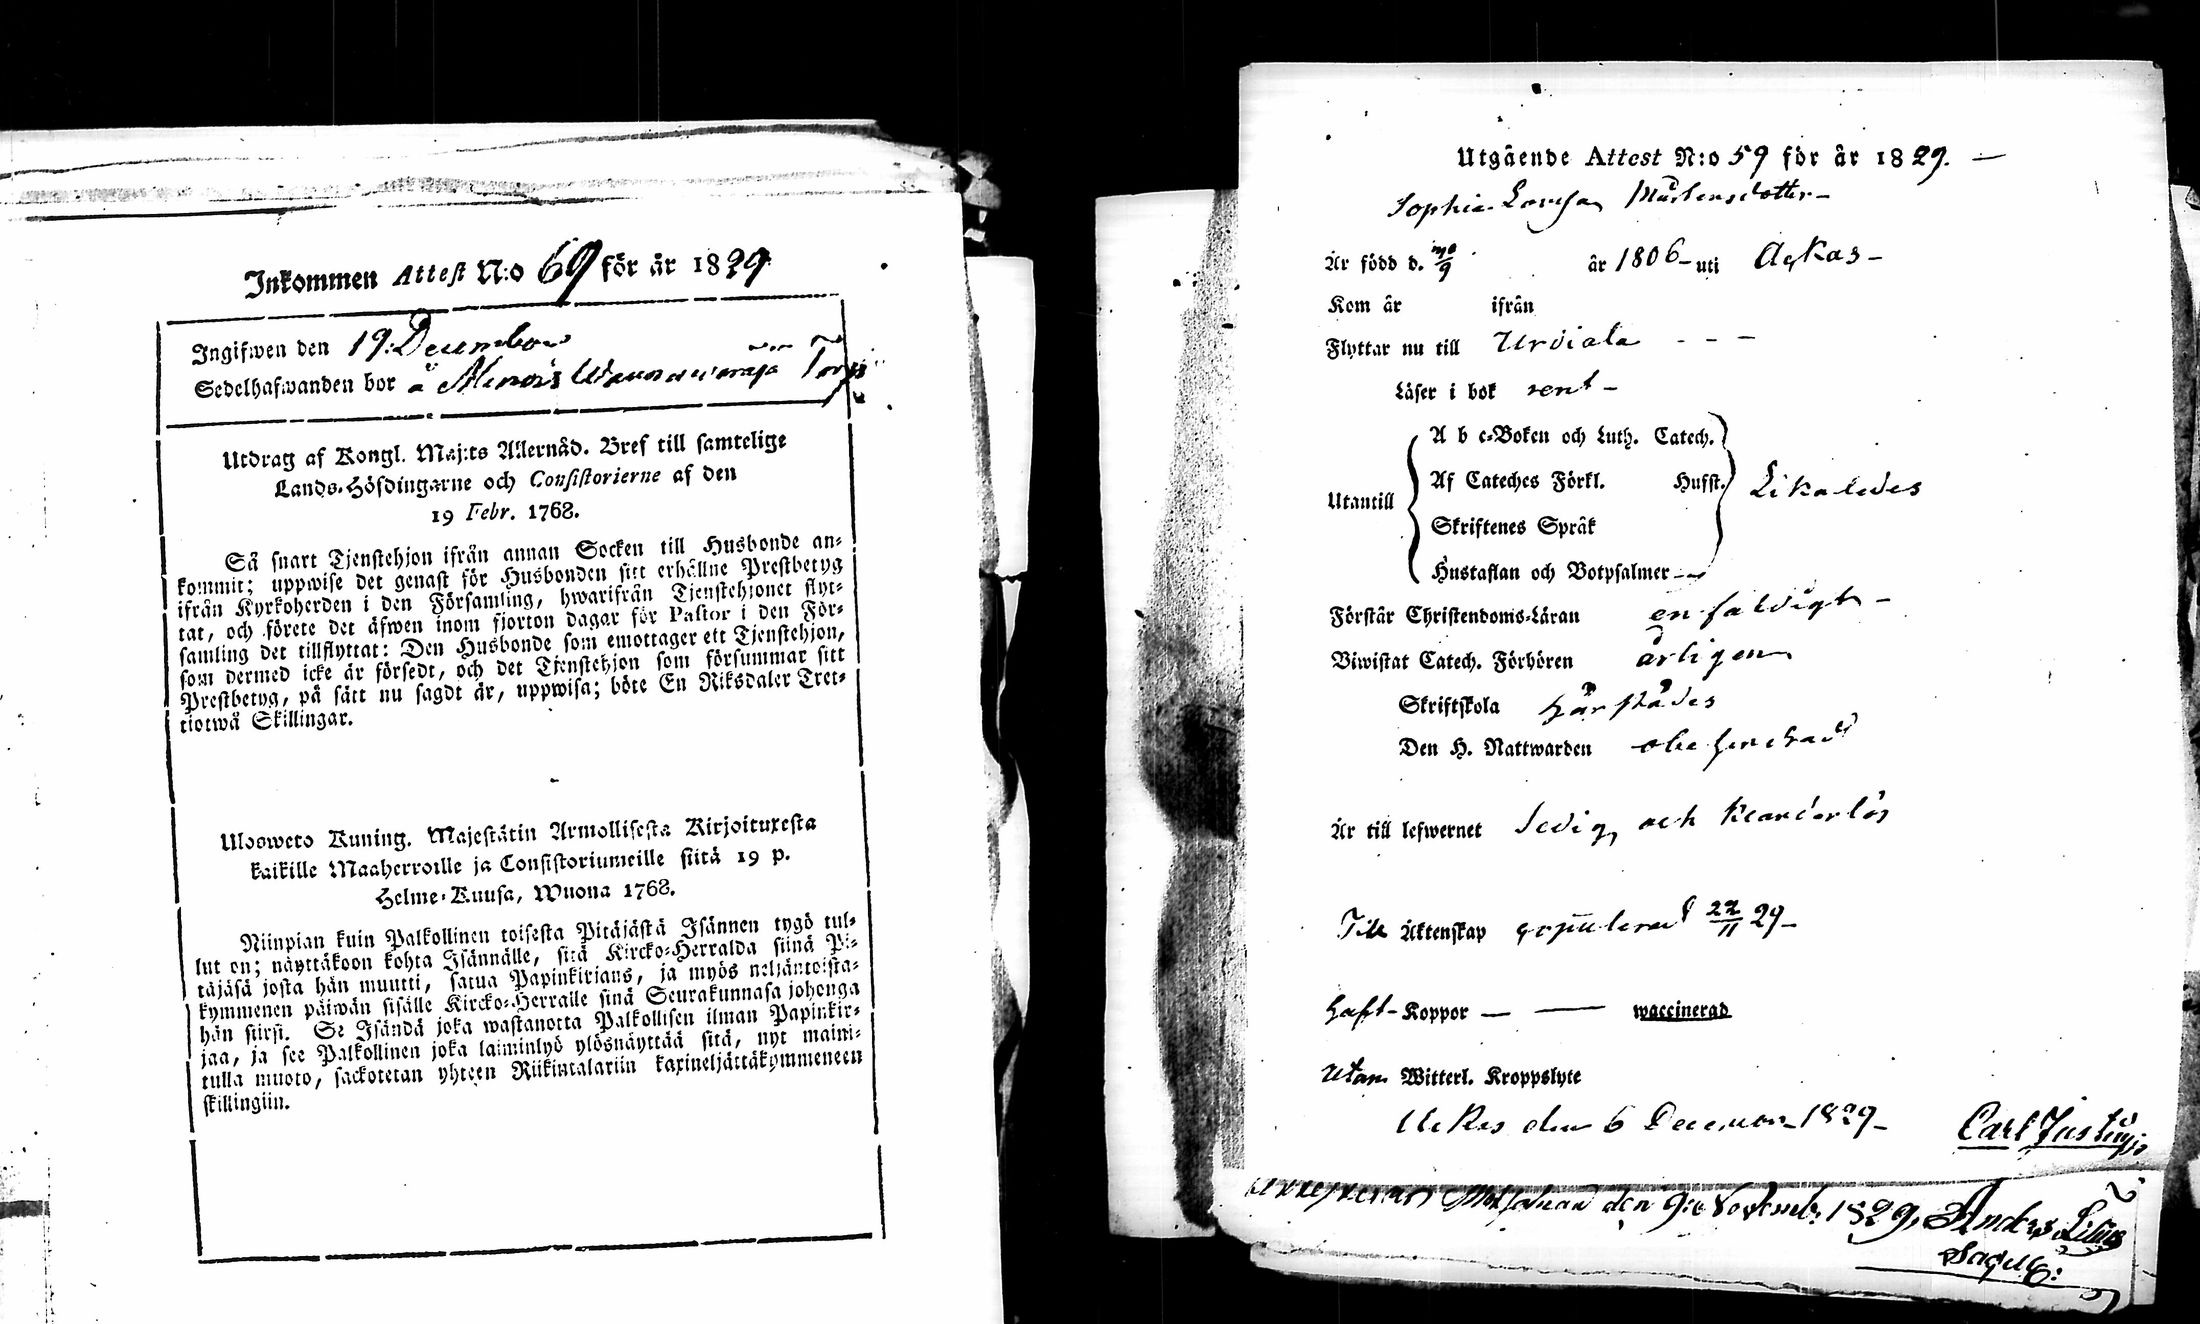 Inkommen Attest N:o 69 för år 1829
Ingifwen den 19 December
Sedelhafwanden bor å Torp
Utdrag af Kongl. Maj:ts Allernåd. Bref till samtelige
Lands-Höfdingarne och Consistorierne af den
19 Febr. 1768.
Så snart Tjenstehjon ifrån annan Socken till Husbonde an-
kommit; uppwise det genast för Husbonden sitt erhållne Prestbetyg
ifrån Kyrkoherden i den Församling, hwarifrån Tjenstehjonet flyt-
tat, och förete det äfwen inom fjorton dagar för Pastor i den För-
samling det tillflyttat: Den Husbonde som emottager ett Tjenstehjon,
som dermed icke är försedt, och det Tjenstehjon som försummar sitt
Prestbetyg, på sätt nu sagdt är, uppwisa; böte En Riksdaler Tret-
tiotwå Skillingar.
Ulosweto Kuning. Majestätin Armollisesta Kirjoituxesta
kaikille Maaherroille ja Consistoriumeille siitä 19 p.
Helme-Kuusa, Wuona 1768.
Niinpian kuin Palkollinen toisesta Pitäjästä Isännen tygö tul-
lut on; näyttäkoon kohta Isännälle, sitä Kircko-Herralda siinä Pi-
täjäsä josta hän muutti, saatua Papinkirjans, ja myös neljäntoista-
kymmenen päiwän sisälle Kircko-Herralle sinä Seurakunnasa johonga
hän siirsi. Se Isändä joka wastanotta Palkollisen ilman Papinkir-
jaa, ja see Palkollinen joka laiminlyö ylösnäyttää sitä, nyt maini-
tulla muoto, sackotetan yhteen Riikintalariin kaxineljättäkymmeneen
skillingiin.
Utgående Attest N:o 59 för år 1829. —
Sophia Lovisa Mårtensdotter —
Är född d. 9 år 1806 — uti Ackas —
Kom år ifrån
Flyttar nu till Urdiala - - -
Läser i bok rent —
A b c-Boken och Luth. Catech.
Af Cateches Förkl. Husst.
Utantill Likaledes
Skriftenes Språk
Hustaflan och Botpsalmer
Förstår Christendoms-Läran enfaldigt —
Biwistat Catech. Förhören årligen
Skriftskola härstädes
Den H. Nattwarden obehindrad
Är till lefwernet ledig och klanderlös
Till Äktenskap copulerad 22/11 29 —
haft Koppor — — waccinerad
Utan Witterl. Kroppslyte
Ackas den 6 December 1829 —
Carl Justus
den 9:e Novemb. 1829, Anders